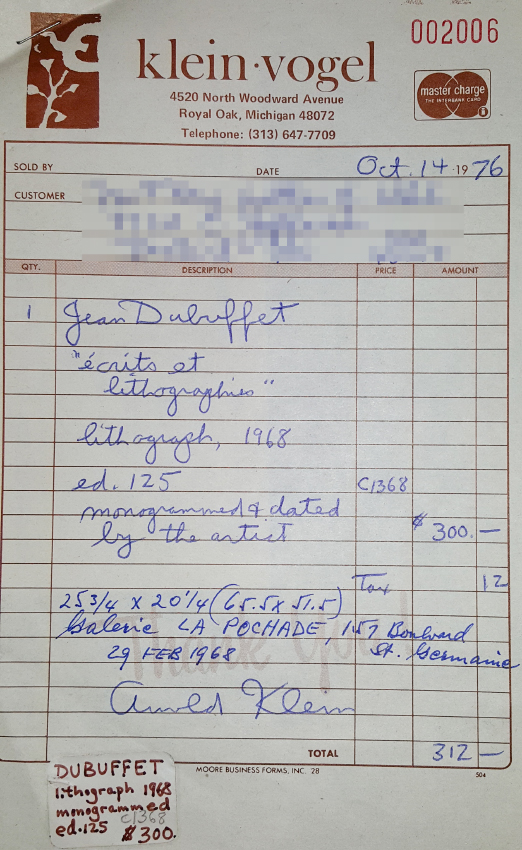 002006
klein·vogel
4520 North Woodward Avenue
Royal Oak, Michigan 48072
Telephone: (313) 647-7709
master charge
THE INTERBANK CARD
i
SOLD BY DATE Oct. 14 19 76
CUSTOMER
QTY. DESCRIPTION PRICE AMOUNT
1 Jean Dubuffet
"écrits et
lithographies"
lithograph, 1968
ed. 125 C1368
monogrammed & dated
by the artist $300.—
Tax 12
25 3/4 x 20 1/4 (65.5 x 51.5)
Galerie LA POCHADE, 157 Boulvard
St. Germaine
29 FEB 1968
Thank You
Arnold Klein
TOTAL 312 —
MOORE BUSINESS FORMS, INC. 28
504
DUBUFFET
lithograph 1968
monogrammed
ed.125 C1368
$300.